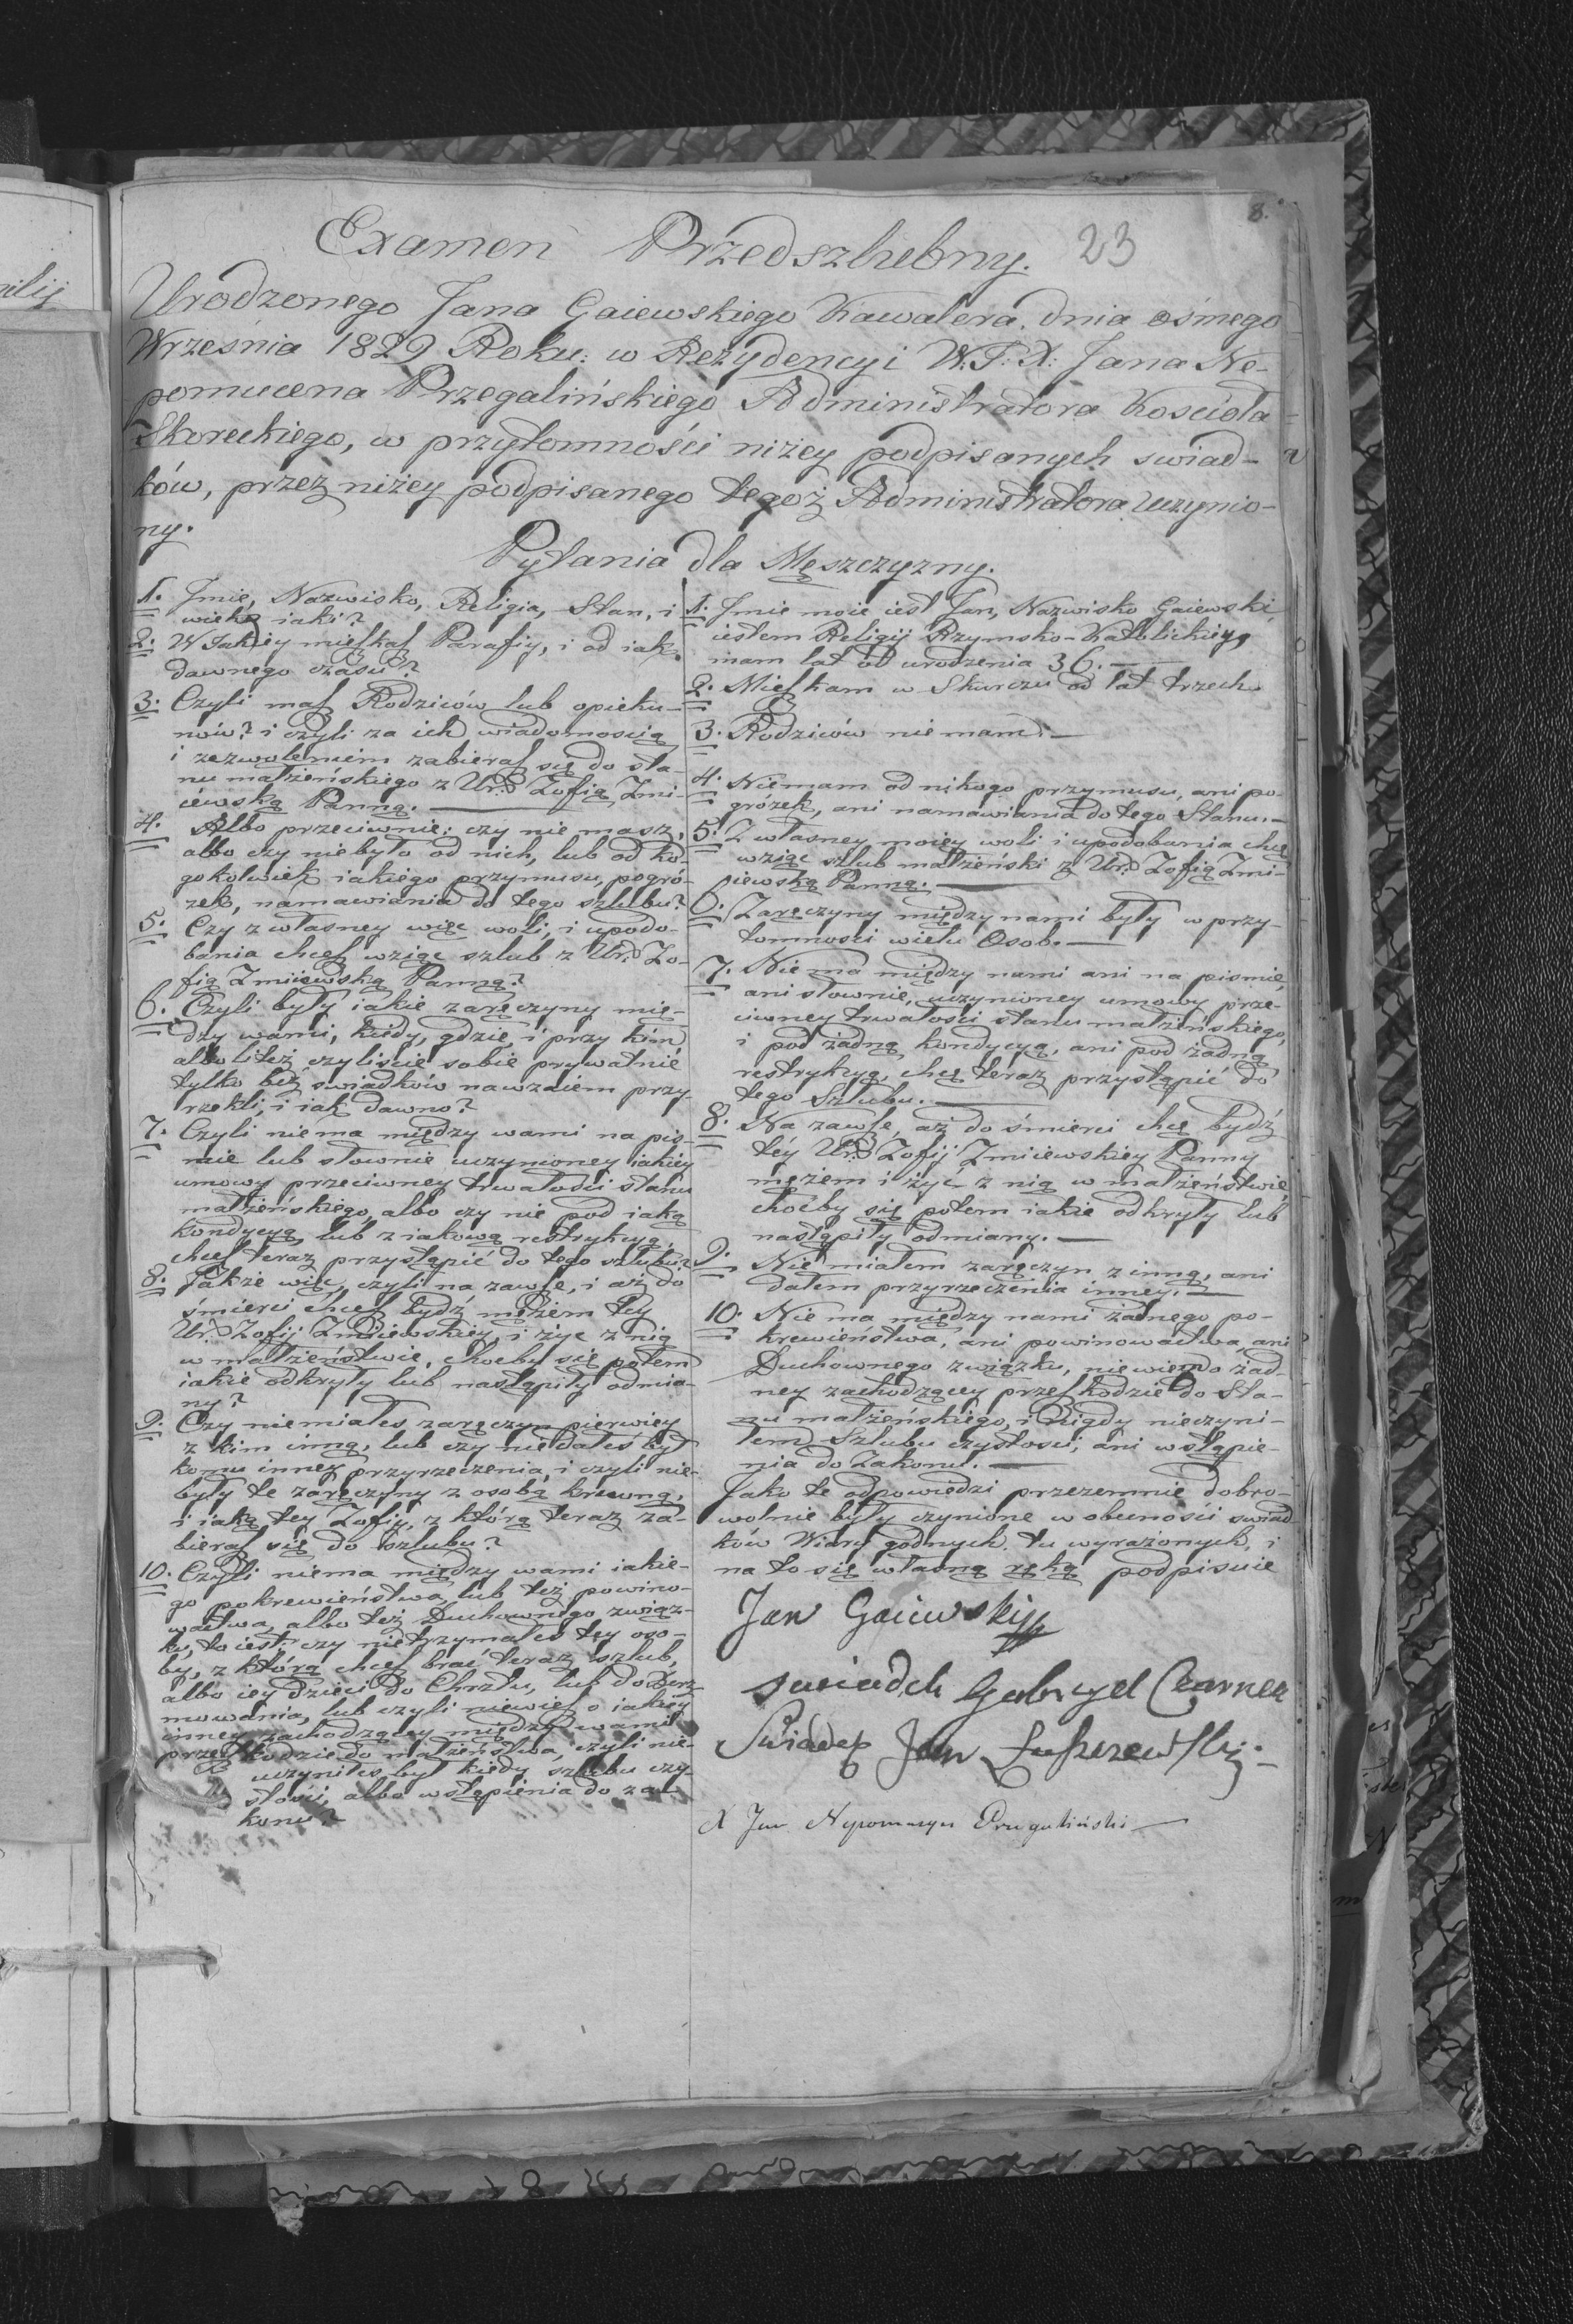 8.
23
Examen Przedszlubny.
Urodzonego Jana Gaiewskiego Kawalera, dnia ośmego
Września 1829 Roku: w Rezydencyi W.J.X. Jana Ne-
pomucena Przegalińskiego Administratora Kościoła
Skoreckiego, w przytomności niżey podpisanych swiad-
ków, przez niżey podpisanego tegoż Administratora uczynio-
ny.
Pytania dla Męszczyzny.
1. Jmie, Nazwisko, Religia, Stan, i
wiek iaki?
2. W Jakiey mieſkaſ Parafiy, i od iak
dawnego czasu?
3. Czyli maſ Rodziców lub opieku-
nów? i czyli za ich wiadomoscią
i zezwoleniem zabieraſ się do sta-
nu małżeńskiego z Ur. Zofią Zmi-
iewską Panną.
4. Albo przeciwnie; czy nie masz,
albo czy niebyło od nich, lub od ko-
gokolwiek iakiego przymusu, pogró-
zek, namawiania do tego szlubu?
5. Czy z własney więc woli, i upodo-
bania chceſ wziąc szlub z Ur. Zo-
fią Zmiiewską Panną?
6. Czyli były iakie zaręczyny mię-
dzy wami, kiedy, gdzie, i przy kim
albo liteż czyliście sobie prywatnie
tylko bez swiadków nawzaiem przy-
rzekli, i iak dawno?
7. Czyli niema między wami na pis-
mie lub słownie uczynioney iakiey
umowy przeciwney trwałości stanu
małżeńskiego, albo czy nie pod iaką
kondycyą, lub z iakową restrykcyą,
chceſ teraz przystąpić do tego szlubu?
8. Jakże więc, czyli na zawſe, i aż do
śmierci chceſ bydź mężem tey
Ur. Zofij Zmiiewskiey, i żyć z nią
w małżeństwie, choćby się potem
iakie odkryły lub nastąpiły odmia-
ny?
9. Czy niemiałes zaręczyn pierwiey
z kim inną, lub czy nie dałeś był
komu inney przyrzeczenia, i czyli nie-
były te zaręczyny z osobą krewną,
i iaką tey Zofiy, z którą teraz za-
bieraſ się do szlubu?
10. Czyli niema między wami iakie-
go pokrewieństwa, lub też powino-
wactwa, albo też Duchownego związ-
ku, to iest: czy nie trzymałeś tey oso-
by, z którą chceſ brać teraz szlub,
albo iey dzieci do Chrztu, lub do Bierz-
mowania, lub czyli niewieſ o iakiey
inney zachodzącey między wami
przeſkodzie do małżeństwa, czyli nie-
uczyniłes był kiedy szlubu czy-
stości, albo wstąpienia do za-
konu?
1. Jmie moie iest Jan, Nazwisko Gaiewski,
iestem Religij Rzymsko-Katolickiey,
mam lat od urodzenia 36.
2. Mieſkam w Skurczu od lat trzech.
3. Rodziców niemam.
4. Niemam od nikogo przymusu, ani po-
grózek, ani namawiania do tego Stanu.
5. Z własney moiey woli i upodobania chcę
wziąc szlub małżeński z Ur. Zofią Zmi-
iewską Panną.
6. Zaręczyny między nami były w przy-
tomności wielu Osob.
7. Nie ma między nami ani na pismie,
ani słownie, uczynioney umowy prze-
ciwney trwałości stanu małżeńskiego,
i pod żadną kondycyą, ani pod żadną
restrykcyą, chcę teraz przystąpić do
tego Szlubu.
8. Na zawſe, aż do śmierci chcę bydź
téy Ur. Zofij Zmiiewskiey Panny
mężem i żyć z nią w małżeństwie
choćby się potem iakie odkryły lub
nastąpiły odmiany.
9. Nie miałem zaręczyn z inną, ani
dałem przyrzeczenia inney.
10. Nie ma między nami żadnego po-
krewieństwa, ani powinowactwa, ani
Duchownego związku, niewiem o żad-
ney zachodzącey przeſkodzie do Sta-
nu małżeńskiego, i nigdy nieczyni-
łem Szlubu czystosci, ani wstąpie-
nia do Zakonu.
Jako te odpowiedzi przezemnie dobro-
wolnie były czynione w obecności swiad-
ków Wiary godnych tu wyrażonych, i
na to się własną ręką podpisuie
Jan Gaiewski
swiadek Gabryel Czarnek
Swiadek Jan
X Jan Nepomucyn Przegaliński